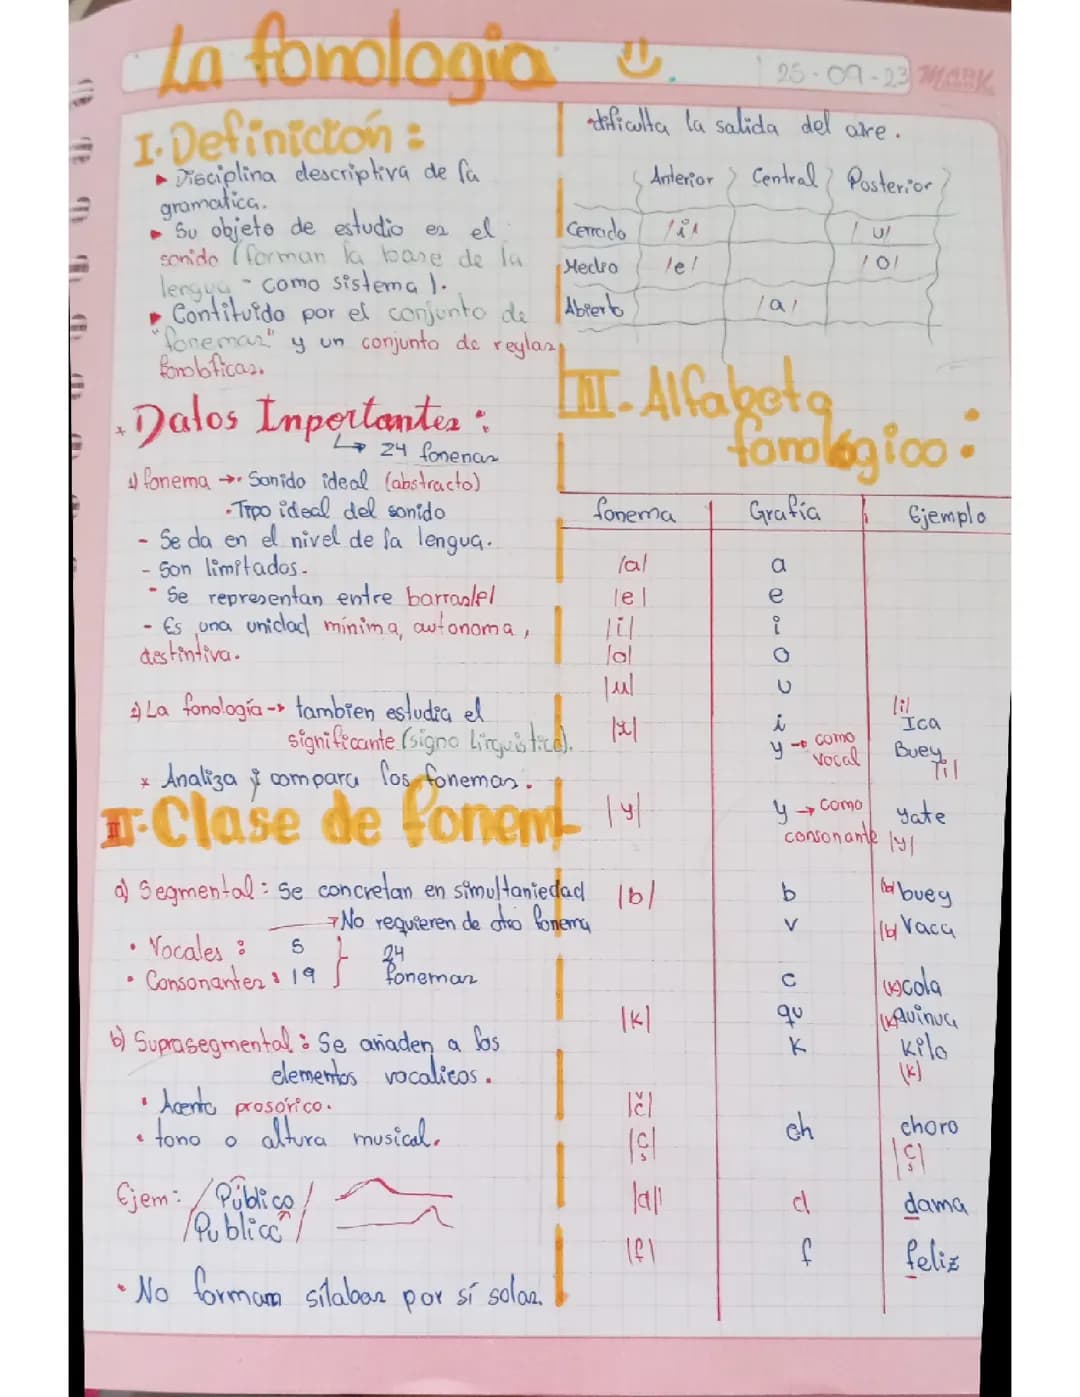 La fonologia
25-09-23 MARK
I. Definición:
▸ Disciplina descriptiva de la
gramatica.
▸ Su objeto de estudio es el
sonido (forman la base de la
lengua - como sistema).
▸ Contituido por el conjunto de
"fonemas" y un conjunto de reglas
Datos Inportantes:
↳ 24 fonemas
1) fonema →· Sonido ideal (abstracto)
·Tipo ideal del sonido
- Se da en el nivel de la lengua.
- Son limitados.
- Se representan entre barras/e/
- Es una unidad mínima, autonoma,
destintiva.
2) La fonología → tambien estudia el
significante (signo lingüistico).
* Analiza y compara los fonemas.
II. Clase de fonem
a) Segmental: Se concretan en simultaniedad
→ No requieren de otro fonema
• Vocales: 5
• Consonantes: 19
24
fonemas
b) Suprasegmental: Se añaden a los
elementos vocalicos.
• Acento prosórico.
• tono o altura musical.
Ejem: /Público/
/Publicó/
• No forman sílabas por sí solas.
dificulta la salida del aire.
Anterior Central Posterior
Cerrado /i/ /u/
Medio /e/ /o/
Abierto /a/
III. Alfabeto
fonológico:
fonema Grafía Ejemplo
/a/ a
/e/ e
/i/ i
/o/ o
/u/ u
i /i/ Ica
y → como vocal Buey /i/
/y/ y → como consonante yate /y/
/b/ b /b/ buey
v /b/ Vaca
c /k/ cola
/k/ qu /k/ Quinua
k kilo /k/
/č/
/ç/ ch choro /ç/
/d/ d dama
/f/ f feliz